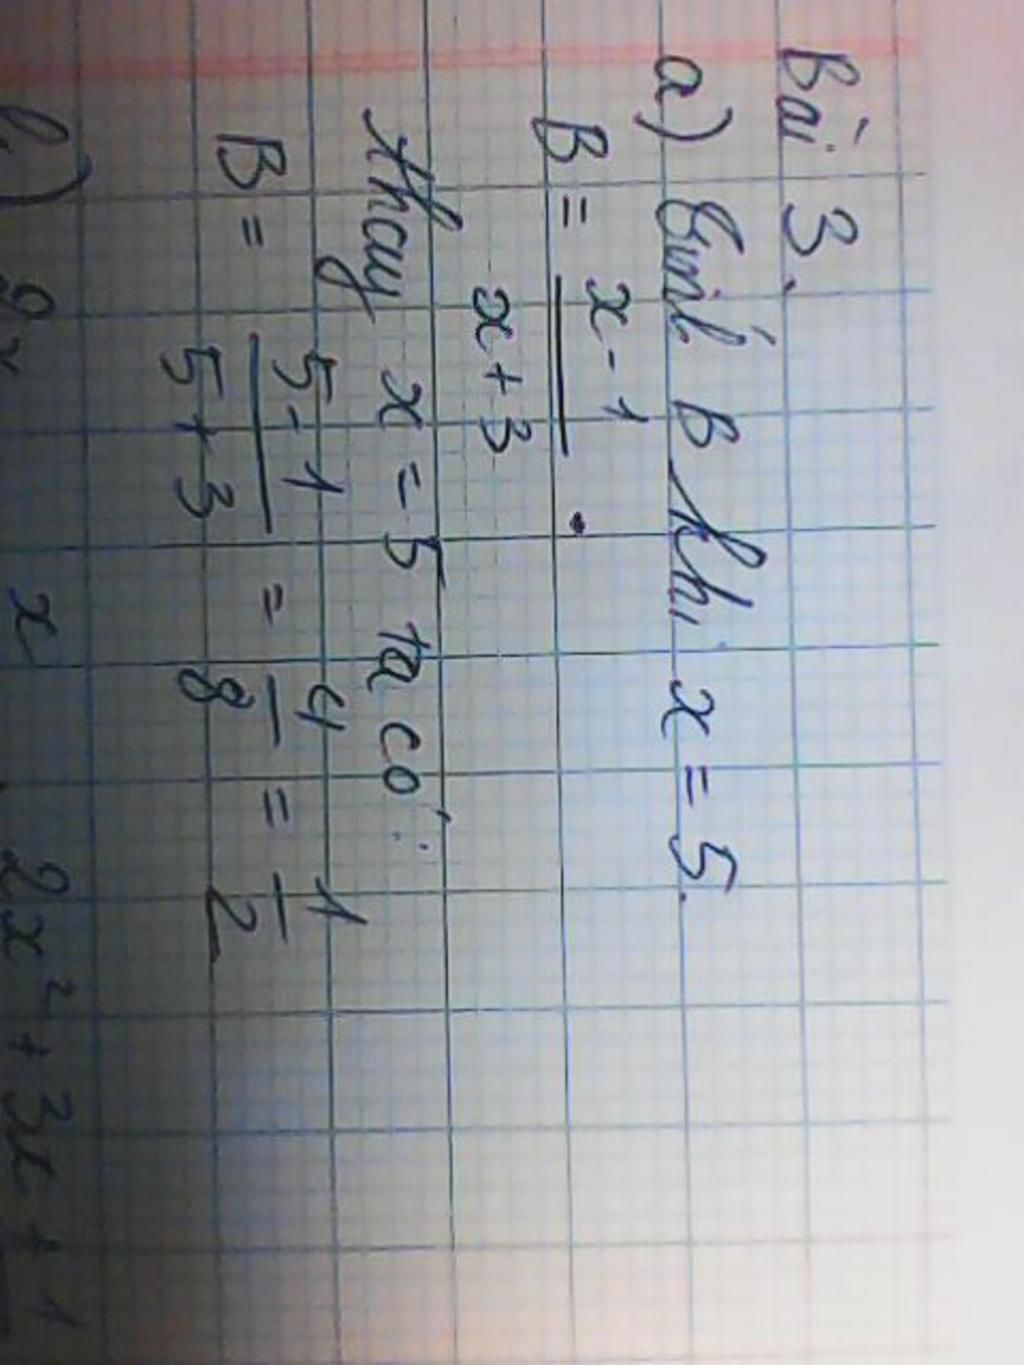 Bài 3.
a) Tính B khi x = 5.
B = \frac{x - 1}{x + 3}
Thay x = 5 ta có :
B = \frac{5 - 1}{5 + 3} = \frac{4}{8} = \frac{1}{2}
b) 2x x 2x² + 3x + 1